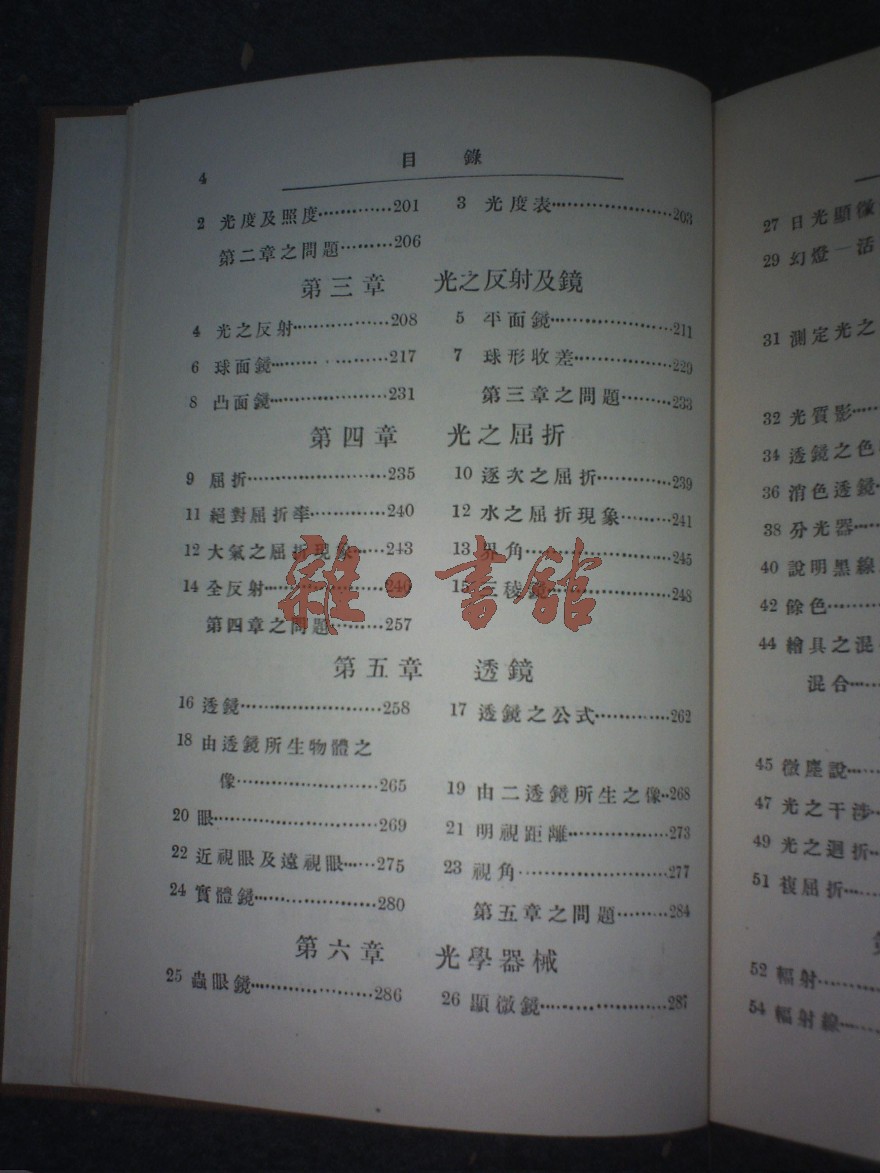 4 目錄
2 光度及照度…………201 3 光度表………………203
第二章之問題………206
第三章 光之反射及鏡
4 光之反射……………208 5 平面鏡………………211
6 球面鏡………………217 7 球形收差……………229
8 凸面鏡………………231 第三章之問題………233
第四章 光之屈折
9 屈折…………………235 10 逐次之屈折…………239
11 絕對屈折率…………240 12 水之屈折現象………241
12 大氣之屈折現象……243 13 界角…………………245
14 全反射………………246 15 三稜鏡………………248
第四章之問題………257
雜·書館
第五章 透鏡
16 透鏡…………………258 17 透鏡之公式…………262
18 由透鏡所生物體之
像……………………265 19 由二透鏡所生之像…268
20 眼……………………269 21 明視距離……………273
22 近視眼及遠視眼……275 23 視角…………………277
24 實體鏡………………280 第五章之問題………284
第六章 光學器械
25 蟲眼鏡………………286 26 顯微鏡………………287
27 日光顯微
29 幻燈—活
31 測定光之
32 光質影……
34 透鏡之色
36 消色透鏡
38 分光器……
40 說明黑線
42 餘色………
44 繪具之混
混合………
45 微塵說……
47 光之干涉
49 光之迴折
51 複屈折……
52 輻射………
54 輻射線……